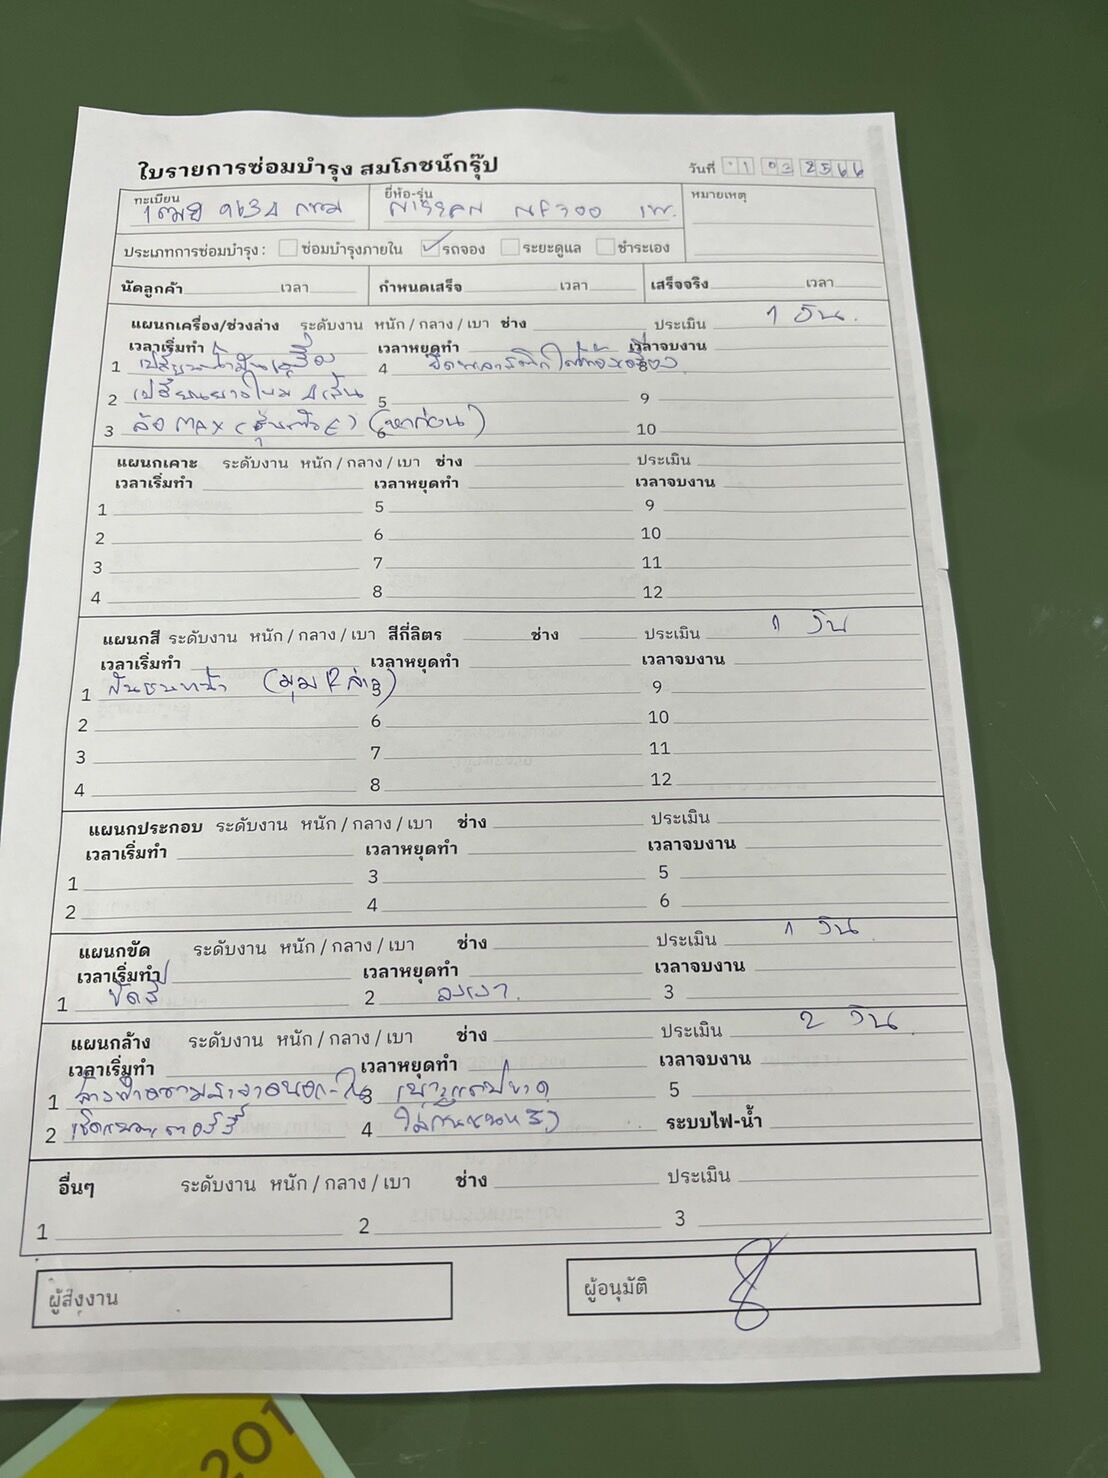 ใบรายการซ่อมบำรุง สมโภชน์กรุ๊ป
วันที่ 01 03 2566
ทะเบียน ยี่ห้อ-รุ่น หมายเหตุ
9634 กทม NISSAN
ประเภทการซ่อมบำรุง : ซ่อมบำรุงภายใน รถจอง ระยะดูแล ชำระเอง
นัดลูกค้า เวลา กำหนดเสร็จ เวลา เสร็จจริง เวลา
แผนกเครื่อง/ช่วงล่าง ระดับงาน หนัก / กลาง / เบา ช่าง ประเมิน 1 วัน
เวลาเริ่มทำ เวลาหยุดทำ เวลาจบงาน
1 เปลี่ยนน้ำมันเครื่อง 4
2 เปลี่ยนยางใหม่ 4 เส้น 5 9
3 ล้อ MAX 10
แผนกเคาะ ระดับงาน หนัก / กลาง / เบา ช่าง ประเมิน
เวลาเริ่มทำ เวลาหยุดทำ เวลาจบงาน
1 5 9
2 6 10
3 7 11
4 8 12
แผนกสี ระดับงาน หนัก / กลาง / เบา สีกี่ลิตร ช่าง ประเมิน 1 วัน
เวลาเริ่มทำ เวลาหยุดทำ เวลาจบงาน
1 กันชนหน้า (มุม R ล่าง) 9
2 6 10
3 7 11
4 8 12
แผนกประกอบ ระดับงาน หนัก / กลาง / เบา ช่าง ประเมิน
เวลาเริ่มทำ เวลาหยุดทำ เวลาจบงาน
1 3 5
2 4 6
แผนกขัด ระดับงาน หนัก / กลาง / เบา ช่าง ประเมิน 1 วัน
เวลาเริ่มทำ เวลาหยุดทำ เวลาจบงาน
1 ขัดสี 2 ลงเงา 3
แผนกล้าง ระดับงาน หนัก / กลาง / เบา ช่าง ประเมิน 2 วัน
เวลาเริ่มทำ เวลาหยุดทำ เวลาจบงาน
1 3 5
2 เช็คแบตเตอรี่ 4 ระบบไฟ-น้ำ
อื่นๆ ระดับงาน หนัก / กลาง / เบา ช่าง ประเมิน
1 2 3
ผู้ส่งงาน ผู้อนุมัติ
201